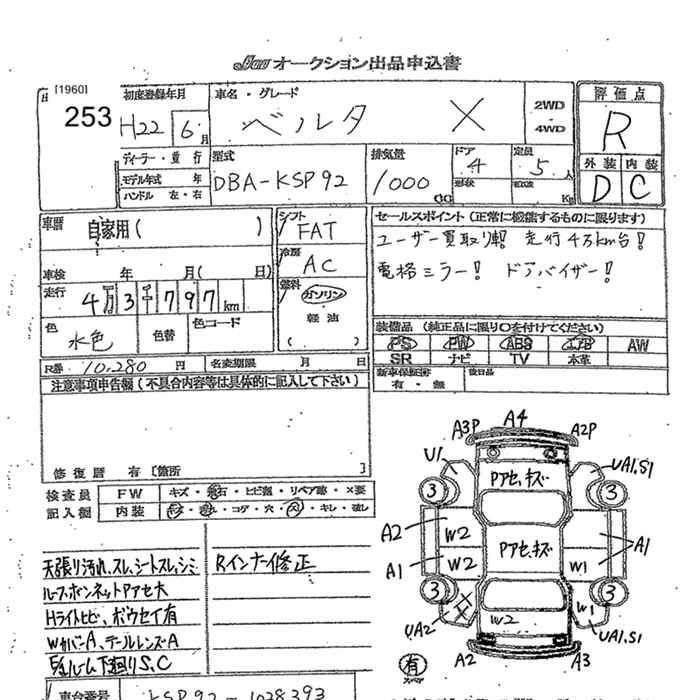 Jau オークション出品申込書
[1960]
253
初度登録年月
H22 6月
車名・グレード
ベルタ X
2WD
4WD
評価点
R
外装 内装
D C
ディーラー・並行
モデル年式 年
ハンドル 左・右
型式
DBA-KSP92
排気量
1000 CC
ドア
4
形状
定員
5人
Kg
車歴
自家用( )
車検 年 月( 日)
走行
4万3千797km
色
水色
色替
色コード
シフト
FAT
冷房
AC
燃料
ガソリン
軽油
( )
セールスポイント(正常に機能するものに限ります)
ユーザー買取り車! 走行4万km台!
電格ミラー! ドアバイザー!
装備品(純正品に限り○を付けてください)
PS PW ABS エアB AW
SR ナビ TV 本革
新車保証書
有・無
後日品
R券 10,280 円
名変期限 月 日
注意事項申告欄(不具合内容等は具体的に記入して下さい)
修復歴 有[箇所 ]
検査員
記入欄
FW キズ・飛石・ヒビ割・リペア跡・X要
内装
天張り汚れ、スレ、シートスレ、シミ
ルーフ・ボンネットPアセ大
Hライトヒビ、ボウセイ有
Wカバー A、テールレンズA
下廻りS,C
Rインナー修正
車台番号
KSP92-1028393
A3P A4 A2P
U1 UA1,S1
Pアセ、キズ
3 3
A2 W2
Pアセ、キズ
A1
A1 W2 W1
3 3
UA2 W2 W1 UA1,S1
A2 A3
有
スペア